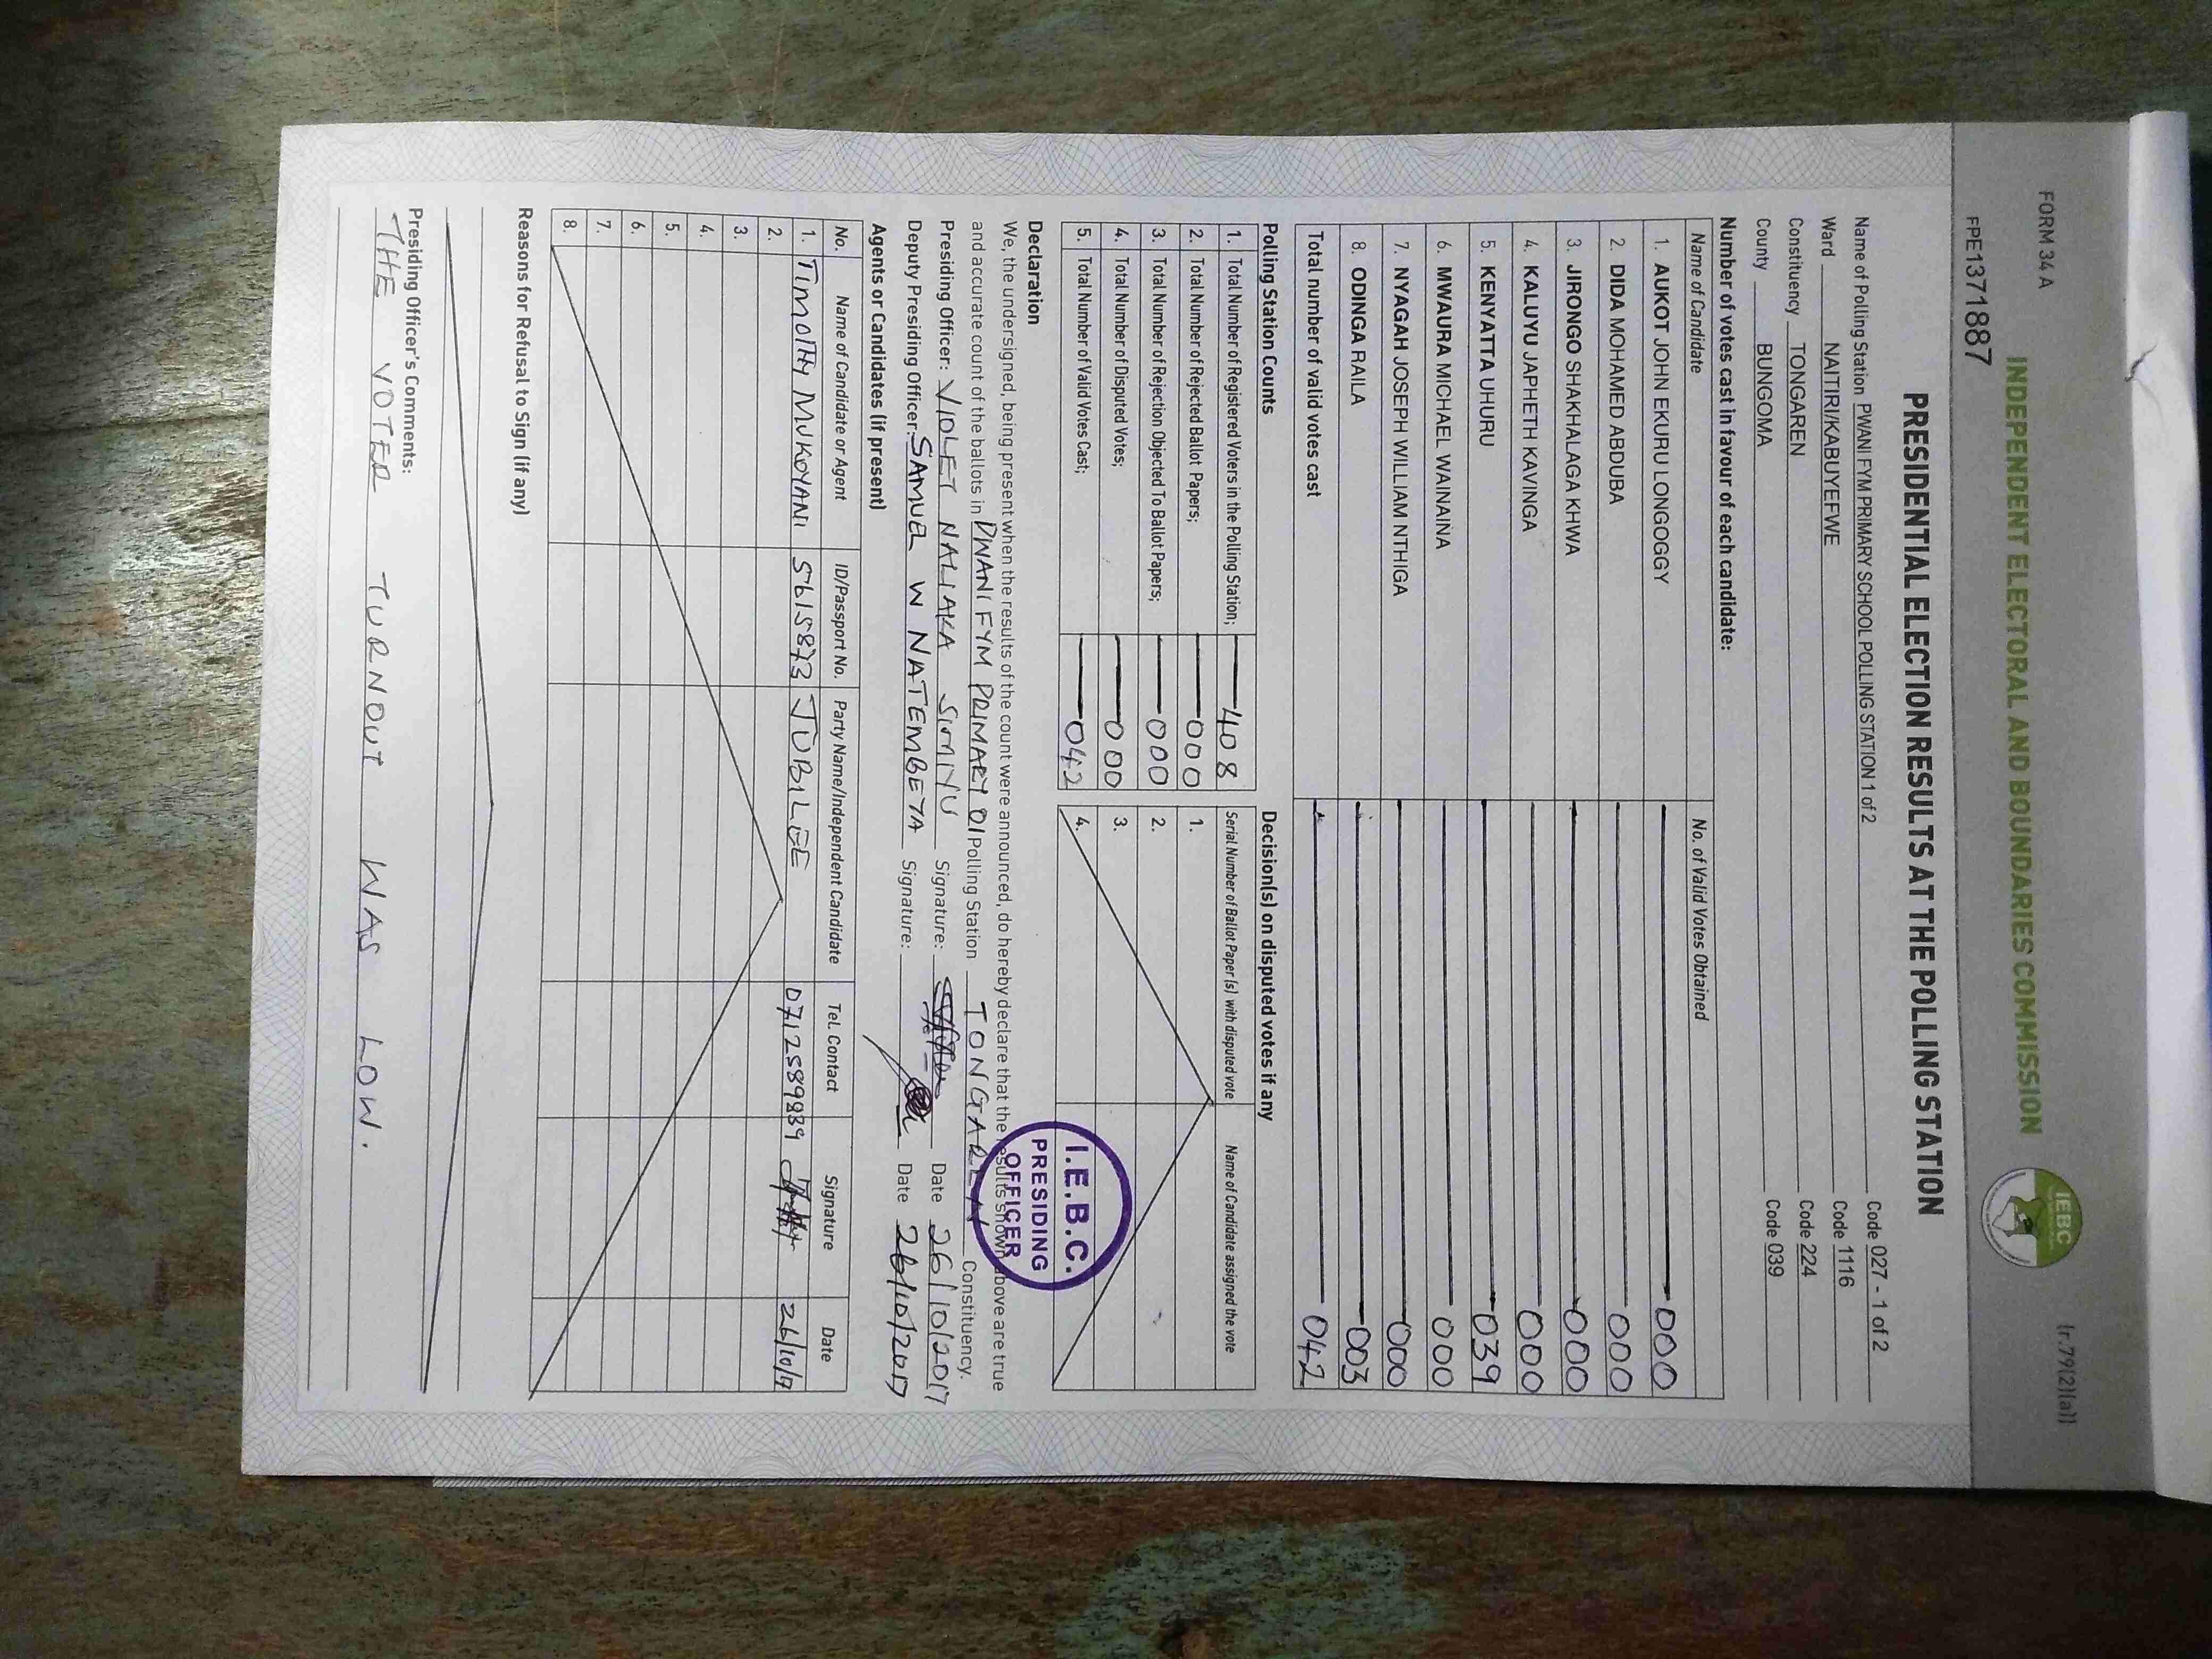 FORM 34 A
(r.79(2)(a))
INDEPENDENT ELECTORAL AND BOUNDARIES COMMISSION
IEBC
FPE1371887
PRESIDENTIAL ELECTION RESULTS AT THE POLLING STATION
Name of Polling Station PWANI FYM PRIMARY SCHOOL POLLING STATION 1 of 2 Code 027 - 1 of 2
Ward NAITIRI/KABUYEFWE Code 1116
Constituency TONGAREN Code 224
County BUNGOMA Code 039
Number of votes cast in favour of each candidate:
Name of Candidate No. of Valid Votes Obtained
1. AUKOT JOHN EKURU LONGOGGY 000
2. DIDA MOHAMED ABDUBA 000
3. JIRONGO SHAKHALAGA KHWA 000
4. KALUYU JAPHETH KAVINGA 000
5. KENYATTA UHURU 039
6. MWAURA MICHAEL WAINAINA 000
7. NYAGAH JOSEPH WILLIAM NTHIGA 000
8. ODINGA RAILA 003
Total number of valid votes cast 042
Polling Station Counts
1. Total Number of Registered Voters in the Polling Station; 408
2. Total Number of Rejected Ballot Papers; 000
3. Total Number of Rejection Objected To Ballot Papers; 000
4. Total Number of Disputed Votes; 000
5. Total Number of Valid Votes Cast; 042
Decision(s) on disputed votes if any
Serial Number of Ballot Paper (s) with disputed vote Name of Candidate assigned the vote
1.
2.
3.
4.
I.E.B.C.
PRESIDING
OFFICER
Declaration
We, the undersigned, being present when the results of the count were announced, do hereby declare that the results shown above are true
and accurate count of the ballots in PWANI FYM PRIMARY 01 Polling Station TONGAREN Constituency.
Presiding Officer: VIOLET NALIAKA SIMIYU Signature: Date 26/10/2017
Deputy Presiding Officer: SAMUEL W NATEMBEYA Signature: Date 26/10/2017
Agents or Candidates (if present)
No. Name of Candidate or Agent ID/Passport No. Party Name/Independent Candidate Tel. Contact Signature Date
1. TIMOTHY MUKOYANI 5615873 JUBILEE 0712589839 26/10/17
2.
3.
4.
5.
6.
7.
8.
Reasons for Refusal to Sign (if any)
Presiding Officer's Comments:
THE VOTER TURNOUT WAS LOW.